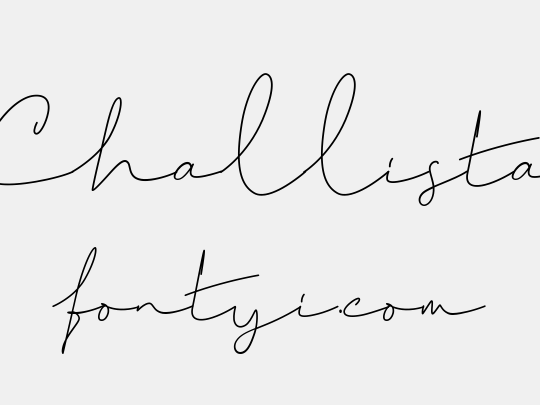 Challista
fontyi.com